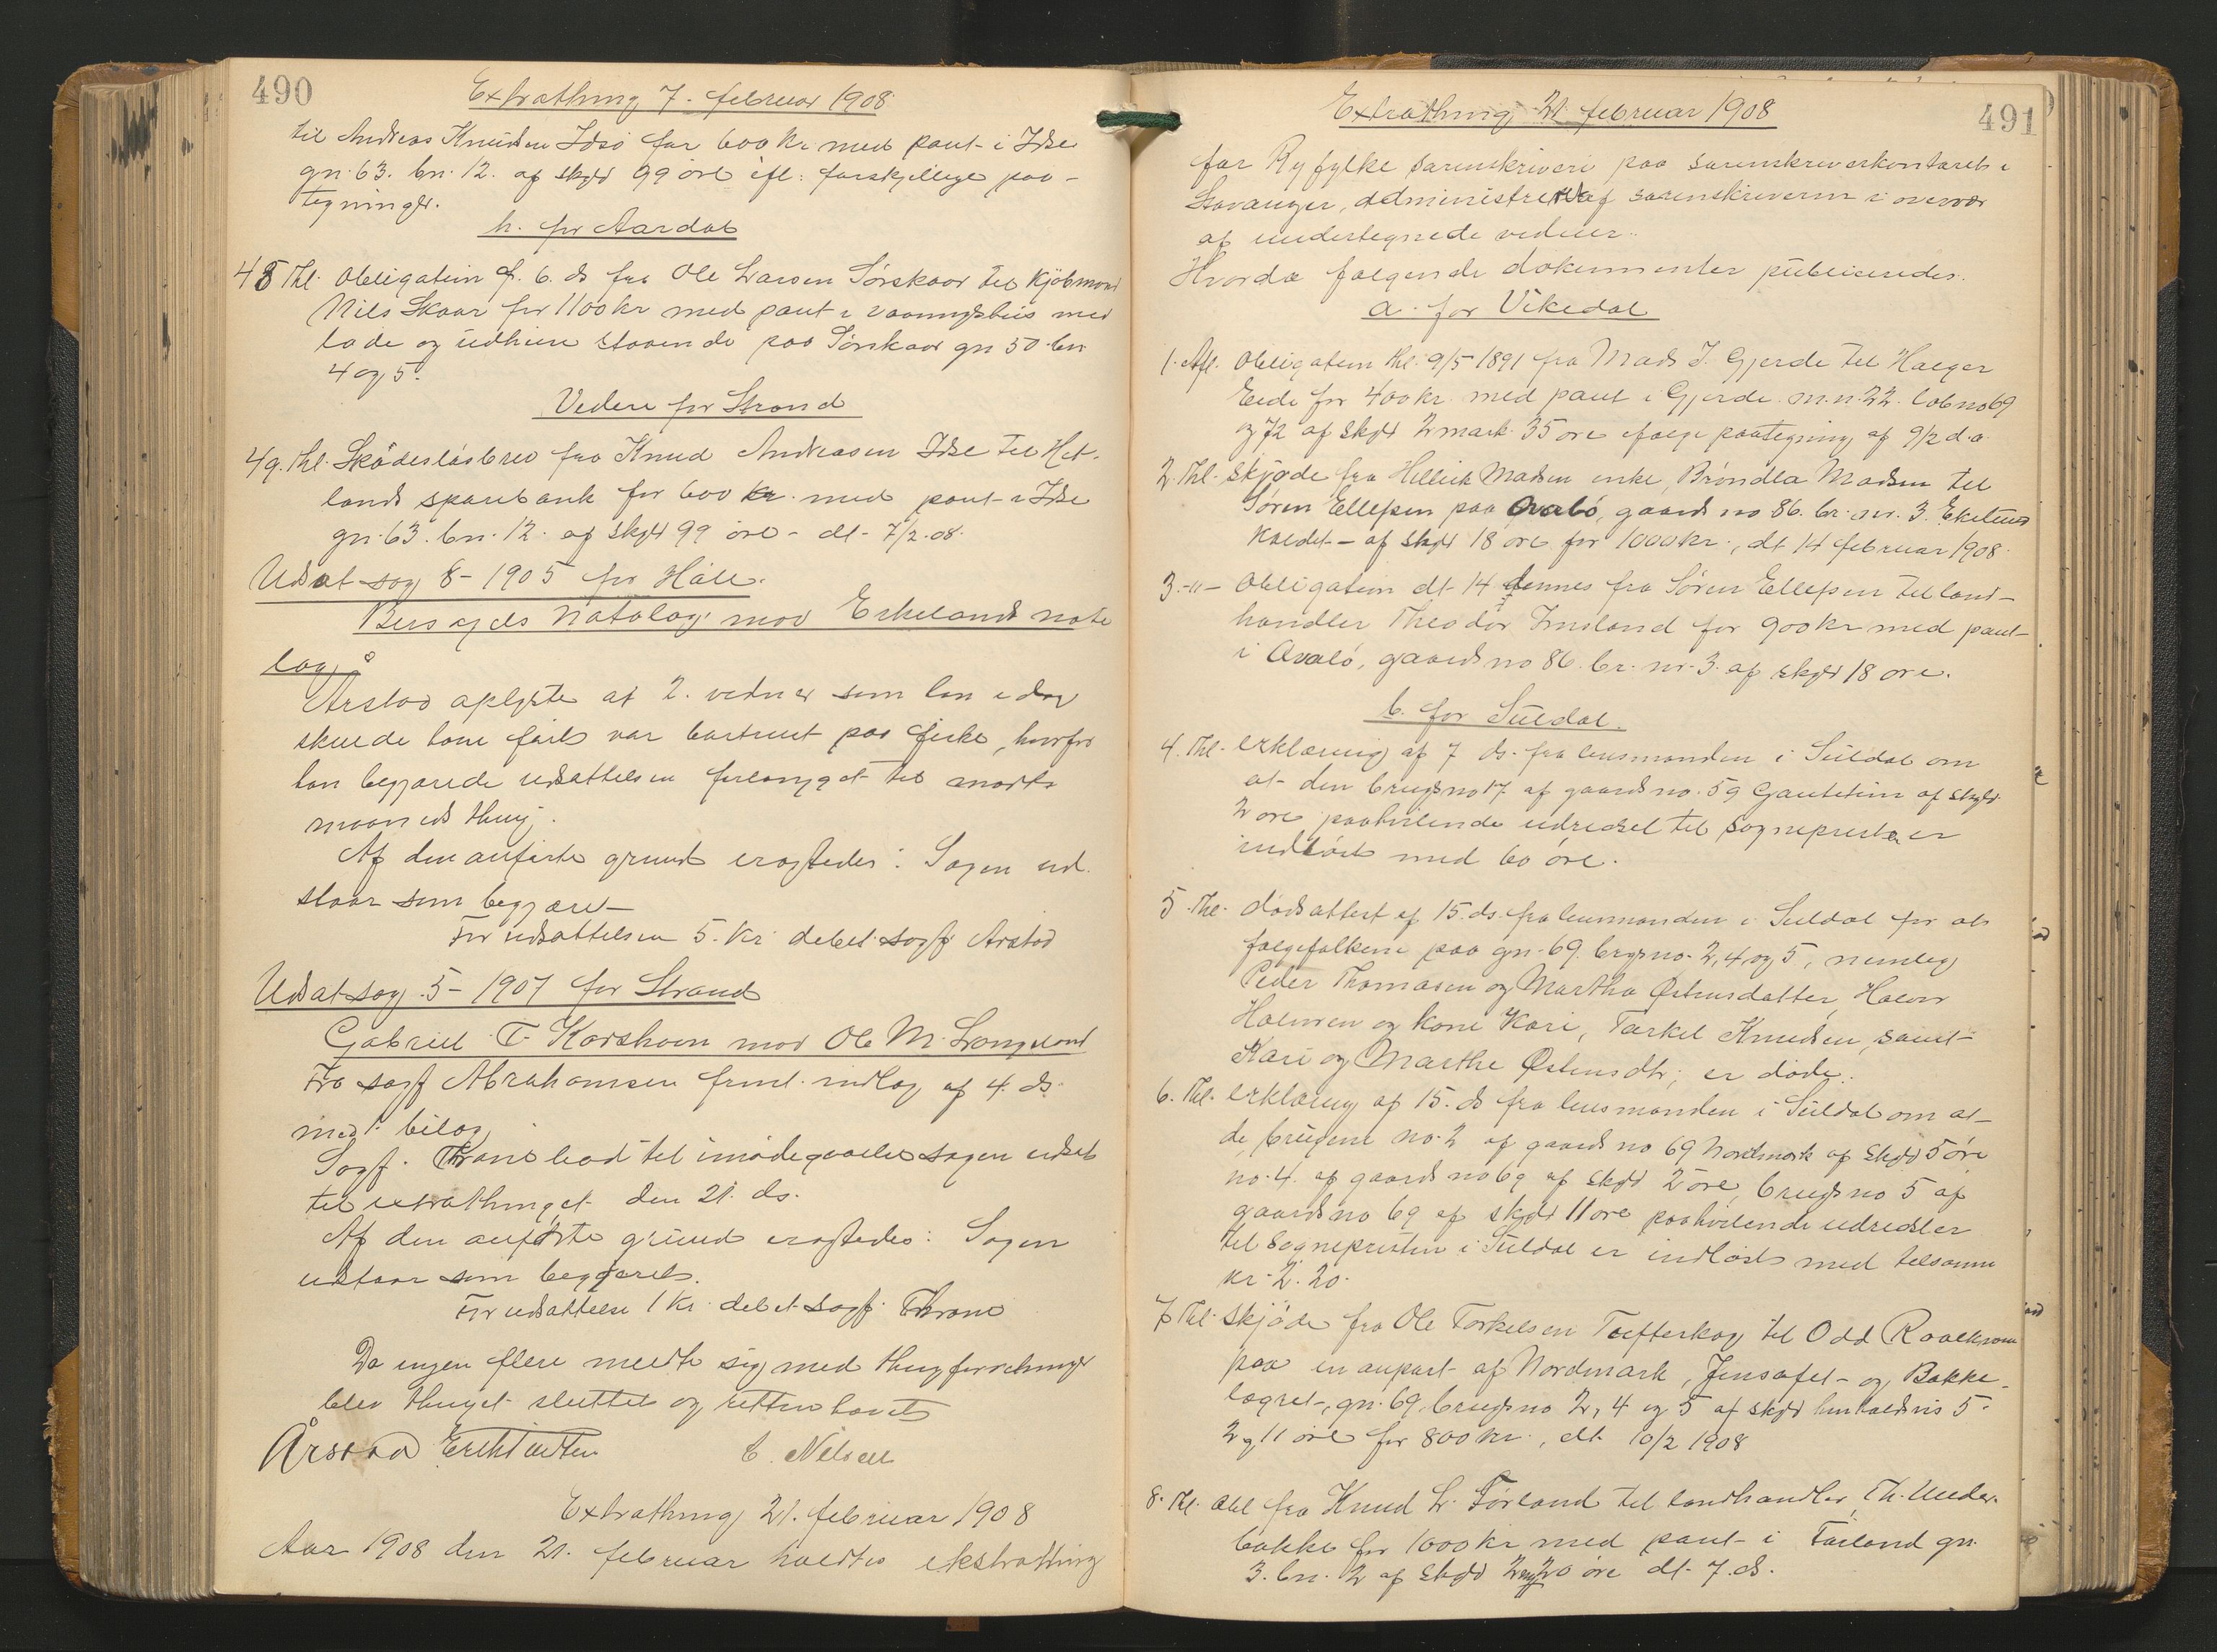 490
Extrathing 7. februar 1908
til Andreas Knudsen Idsö for 600 kr med pant i Idse
gn. 63. bn. 12. af skyld 99 öre ifl: forskjellige paa-
tegninger.
h. for Aardal
48 Thl. Obligation af 6. ds fra Ole Larsen Sørskaar til Kjöbmand
Nils Skaar for 1100 kr med pant i vaaningshus med
lade og udhuse staaende paa Sörskaar gn 50. bn
4 og 5.
Videre for Strand
49. Thl. Skadeslösbrev fra Knud Andreasen Idse til Het-
lands sparebank for 600 kr. med pant i Idse
gn. 63. bn. 12. af skyld 99 öre - dt. 7/2.08.
Udsat sag 8 - 1905 for Hålle.
notelag mod Eikelands note
lag
Årstad oplyste at 2. vidner som han idag
skulde have fört var bortreist paa fiske, hvorfor
han begjærede udsættelsen forlænget til marts
maaneds thing.
Af den anförte grund eragtedes: Sagen ud
staar som begjæret
For udsættelsen 5. kr debet sagf Årstad
Udsat sag 5 - 1907 for Strand
Gabriel T. Korshavn mod Ole M. Langeland
Fra sagf Abrahamsen freml. indlæg af 4. ds.
med 1 bilag
Sagf. Thrane bad til imödegaaelse sagen udsat
til extrathinget den 21. ds.
Af den anförte grund eragtedes: Sagen
udstaar som begjæret.
For udsættelse 1 kr. debet sagf. Thrane
Da ingen flere meldte sig med thingforretninger
blev thinget sluttet og retten hævet
Årstad C. Nilsen
Extrathing 21. februar 1908
Aar 1908 den 21. februar holdtes ekstrathing
Extrathing 21 februar 1908
491
for Ryfylke sorenskriveri paa sorenskriverkontoret i
Stavanger, administreret af sorenskriveren i overvær
af undertegnede vidner.
Hvorda følgende dokumenter publiceredes.
a. for Vikedal
1. Afl. Obligation thl. 9/5 1891 fra Mads J. Gjerde til Holger
Eide for 400 kr. med pant i Gjerde m.n. 22. lob no 69
og 72 af skyld 2 mark 35 öre ifölge paategning af 9/2 d.a.
2. Thl. Skjøde fra Hellick Madsen enke, Bröndla Madsen til
Sören Ellefsen paa Ovabö, gaards no 86. br. nr. 3. Ekelund
kaldet - af skyld 18 öre for 1000 kr., dt 14 februar 1908.
3. -"- Obligation dt 14 dennes fra Sören Ellefsen til land-
handler Theodor Imsland for 900 kr med pant
i Ovabö, gaards no 86. br. nr. 3. af skyld 18 öre.
b. for Suldal.
4. Thl. erklæring af 7 ds. fra lensmanden i Suldal om
at den brugs no 17 af gaards no. 59 Gautetun af skyld
2 öre paahvilende udredsel til sognepresten er
indløst med 60 öre.
5. Thl. dødsattest af 15. ds. fra lensmanden i Suldal for at
følgefolkene paa gn. 69. brgs no. 2, 4, og 5, nemlig
Peder Thomasen og Martha Østensdatter, Halvor
Halvorsen og kone Kari, Tarkel Knudsen, samt
Kari og Marthe Østensdtr, er døde.
6. Thl. erklæring af 15. ds fra lensmanden i Suldal om at
de brugene no. 2 af gaards no 69 Nordmork af skyld 5 öre
no. 4. af gaards no 69 af skyld 2 öre, brugs no 5 af
gaards no 69 af skyld 11 öre paahvilende udredsler
til sognepresten i Suldal er indløst med tilsammen
kr. 2. 20.
7 Thl. skjöde fra Ole Torkelsen Tufteskog til Odd
paa en anpart af Nordmark, Jensafet- og Bakke-
lægret, gn. 69, brugs no 2, 4 og 5 af skyld henholdsvis 5.
2 og 11 öre for 800 kr., dt. 10/2 1908
8. Thl. Obl fra Knud L. Førland til landhandler Th. Under-
bakke for 1000 kr med pant i Førland gn.
3. bn. 2 af skyld 2 mk 20 öre dt. 7. ds.